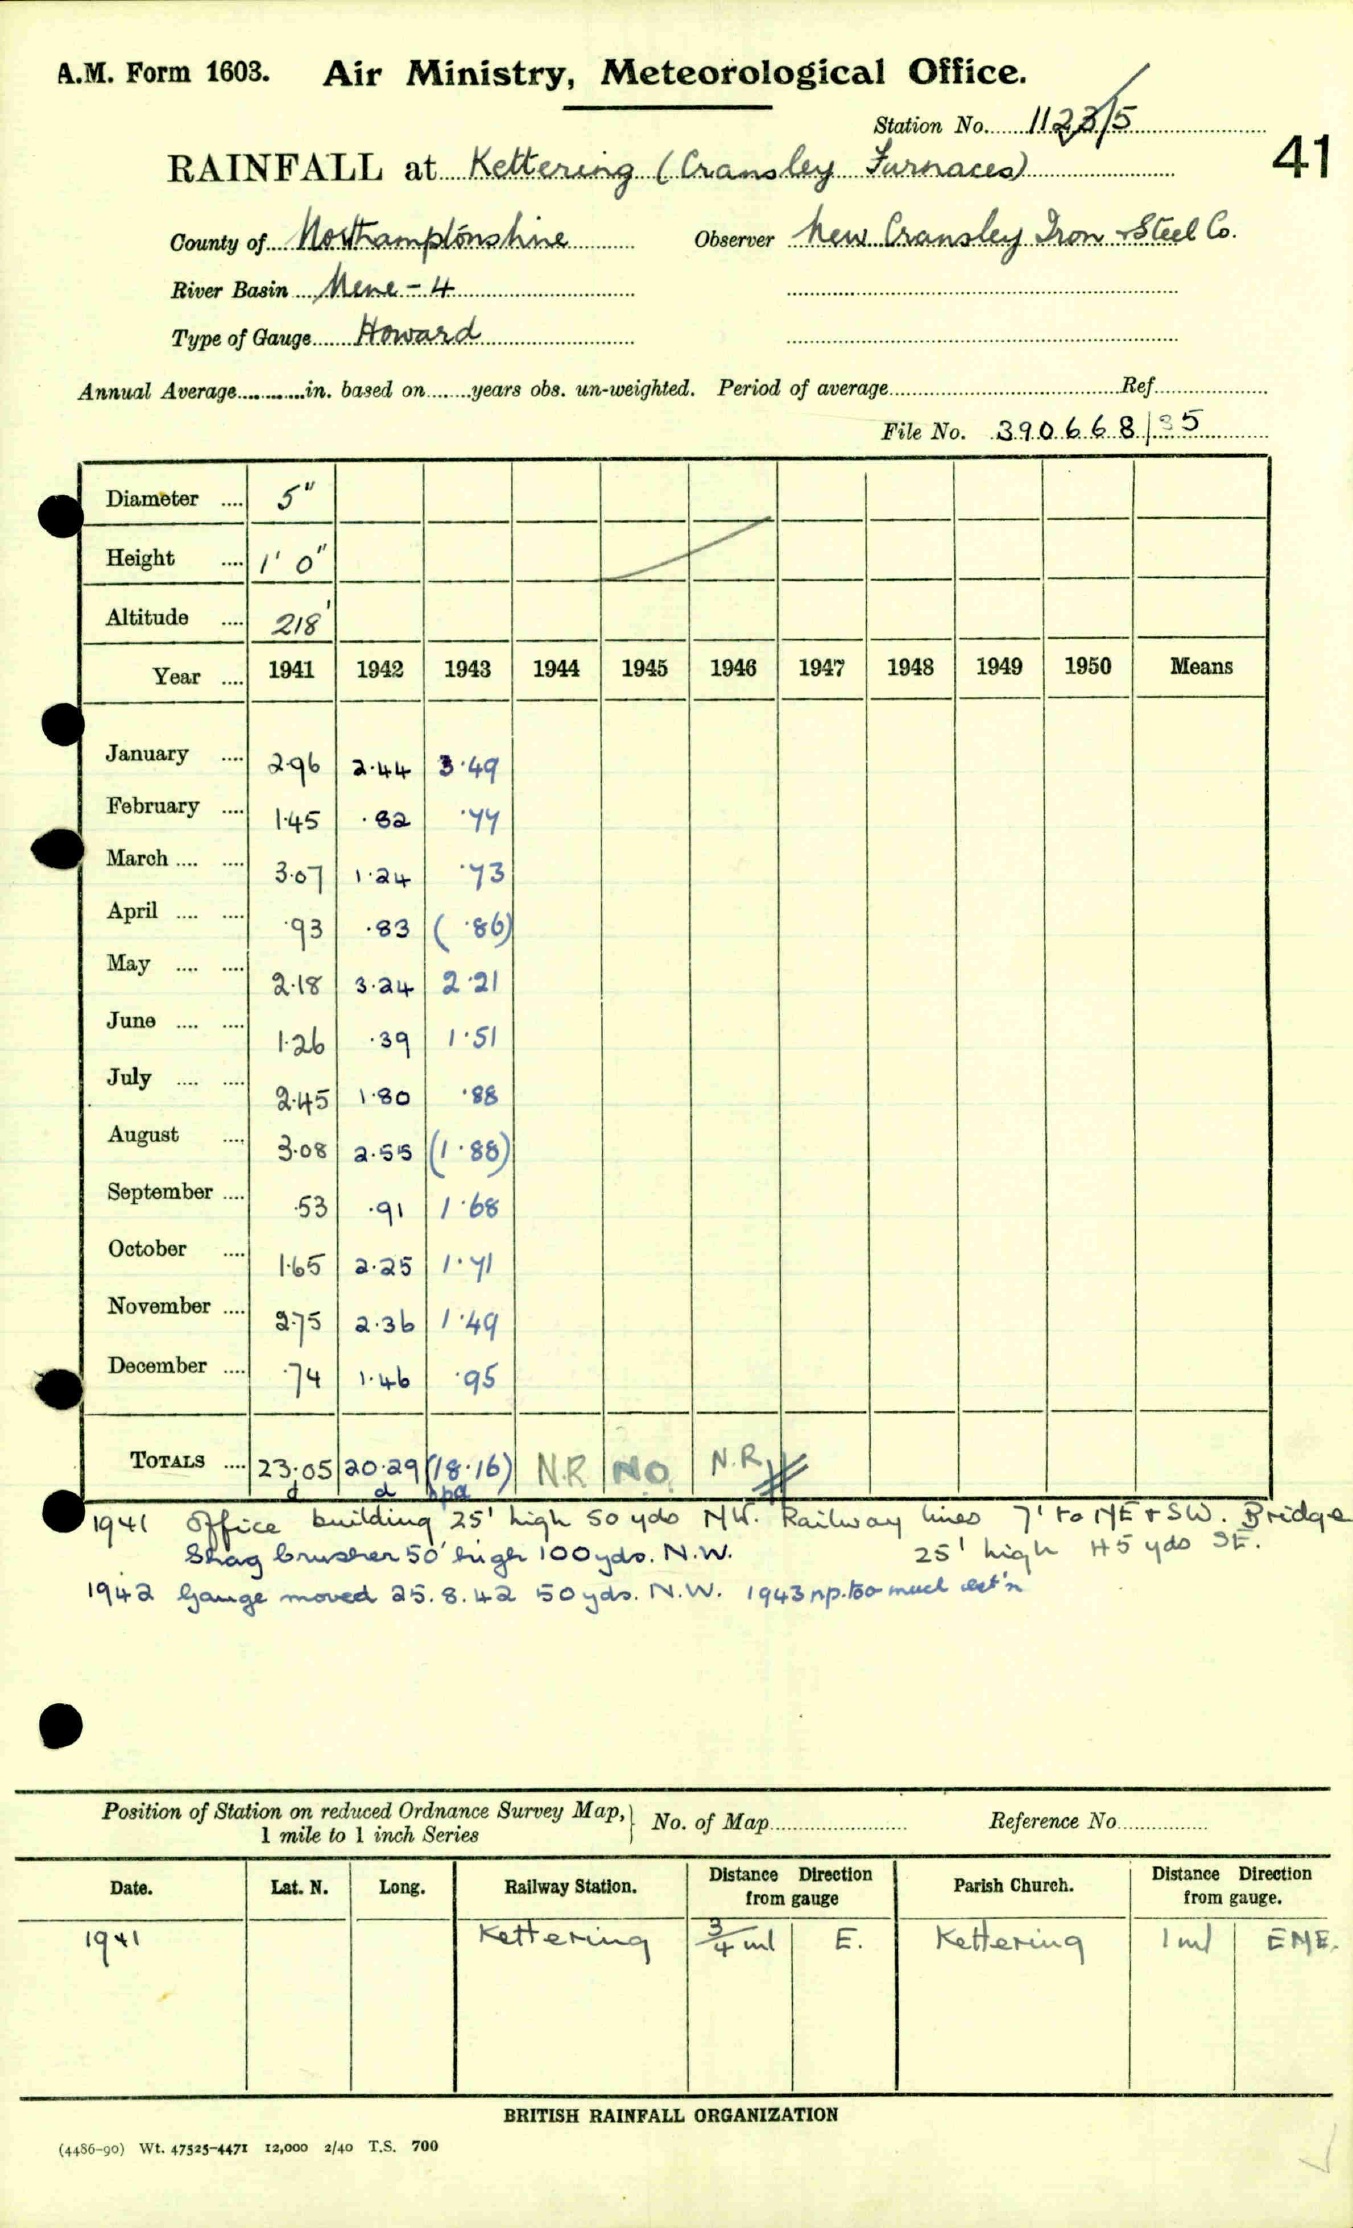 A.M. Form 1603. Air Ministry, Meteorological Office.
Station No. 1123/5
41
RAINFALL at Kettering (Cransley Furnaces)
County of Northamptonshire Observer New Cransley Iron & Steel Co.
River Basin Nene - 4
Type of Gauge Howard
Annual Average in. based on years obs. un-weighted. Period of average Ref
File No. 390668/35
Diameter .... 5"
Height .... 1' 0"
Altitude .... 218'
Year .... 1941 1942 1943 1944 1945 1946 1947 1948 1949 1950 Means
January .... 2.96 2.44 3.49
February .... 1.45 .82 .77
March .... .... 3.07 1.24 .73
April .... .... .93 .83 (.86)
May .... .... 2.18 3.24 2.21
June .... .... 1.26 .39 1.51
July .... .... 2.45 1.80 .88
August .... 3.08 2.55 (1.88)
September .... .53 .91 1.68
October .... 1.65 2.25 1.71
November .... 2.75 2.36 1.49
December .... .74 1.46 .95
TOTALS .... 23.05 20.29 (18.16) N.R. NO. N.R.
d d npd
1941 Office building 25' high 50 yds NW. Railway lines 7' to NE & SW. Bridge
Slag crusher 50' high 100 yds. N.W. 25' high 45 yds SE.
1942 Gauge moved 25.8.42 50 yds. N.W. 1943 np. too much est'n
Position of Station on reduced Ordnance Survey Map, 1 mile to 1 inch Series } No. of Map Reference No
Date. Lat. N. Long. Railway Station. Distance Direction from gauge Parish Church. Distance Direction from gauge.
1941 Kettering 3/4 ml E. Kettering 1 ml ENE.
BRITISH RAINFALL ORGANIZATION
(4486-90) Wt. 47525-4471 12,000 2/40 T.S. 700